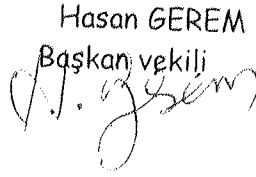 Hasan GEREM
Başkan vekili